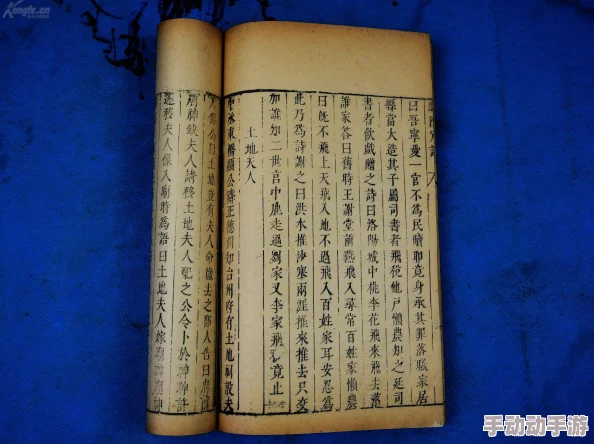 Kongfz.cn
曰吾寧受一官不為民贖耶竟身承其罪落職家居
縣當大造其子屬司書者飛苑他戶懶農知之延司
書者飲戲贈之詩曰洛陽城中桃李花飛來飛去落
誰家答曰舊時王謝堂前燕飛入尋常百姓家懶農
曰旣不飛上天飛入地不過飛入百姓家耳安忍爲
此乃爲詩謝之曰洪水推沙塞兩涯推來推去只交
加誰知二世宫中鹿走過劉家又李家飛 竟止
土地夫人
東 公 正德間知台州府有土地祠設夫
人 公曰土地豈有夫人命撤去之郡人告曰府
廟神缺夫人請移土地夫人配之公令卜於神神許
遂移夫人像入廟時爲語曰土地夫人嫁
手动动手游